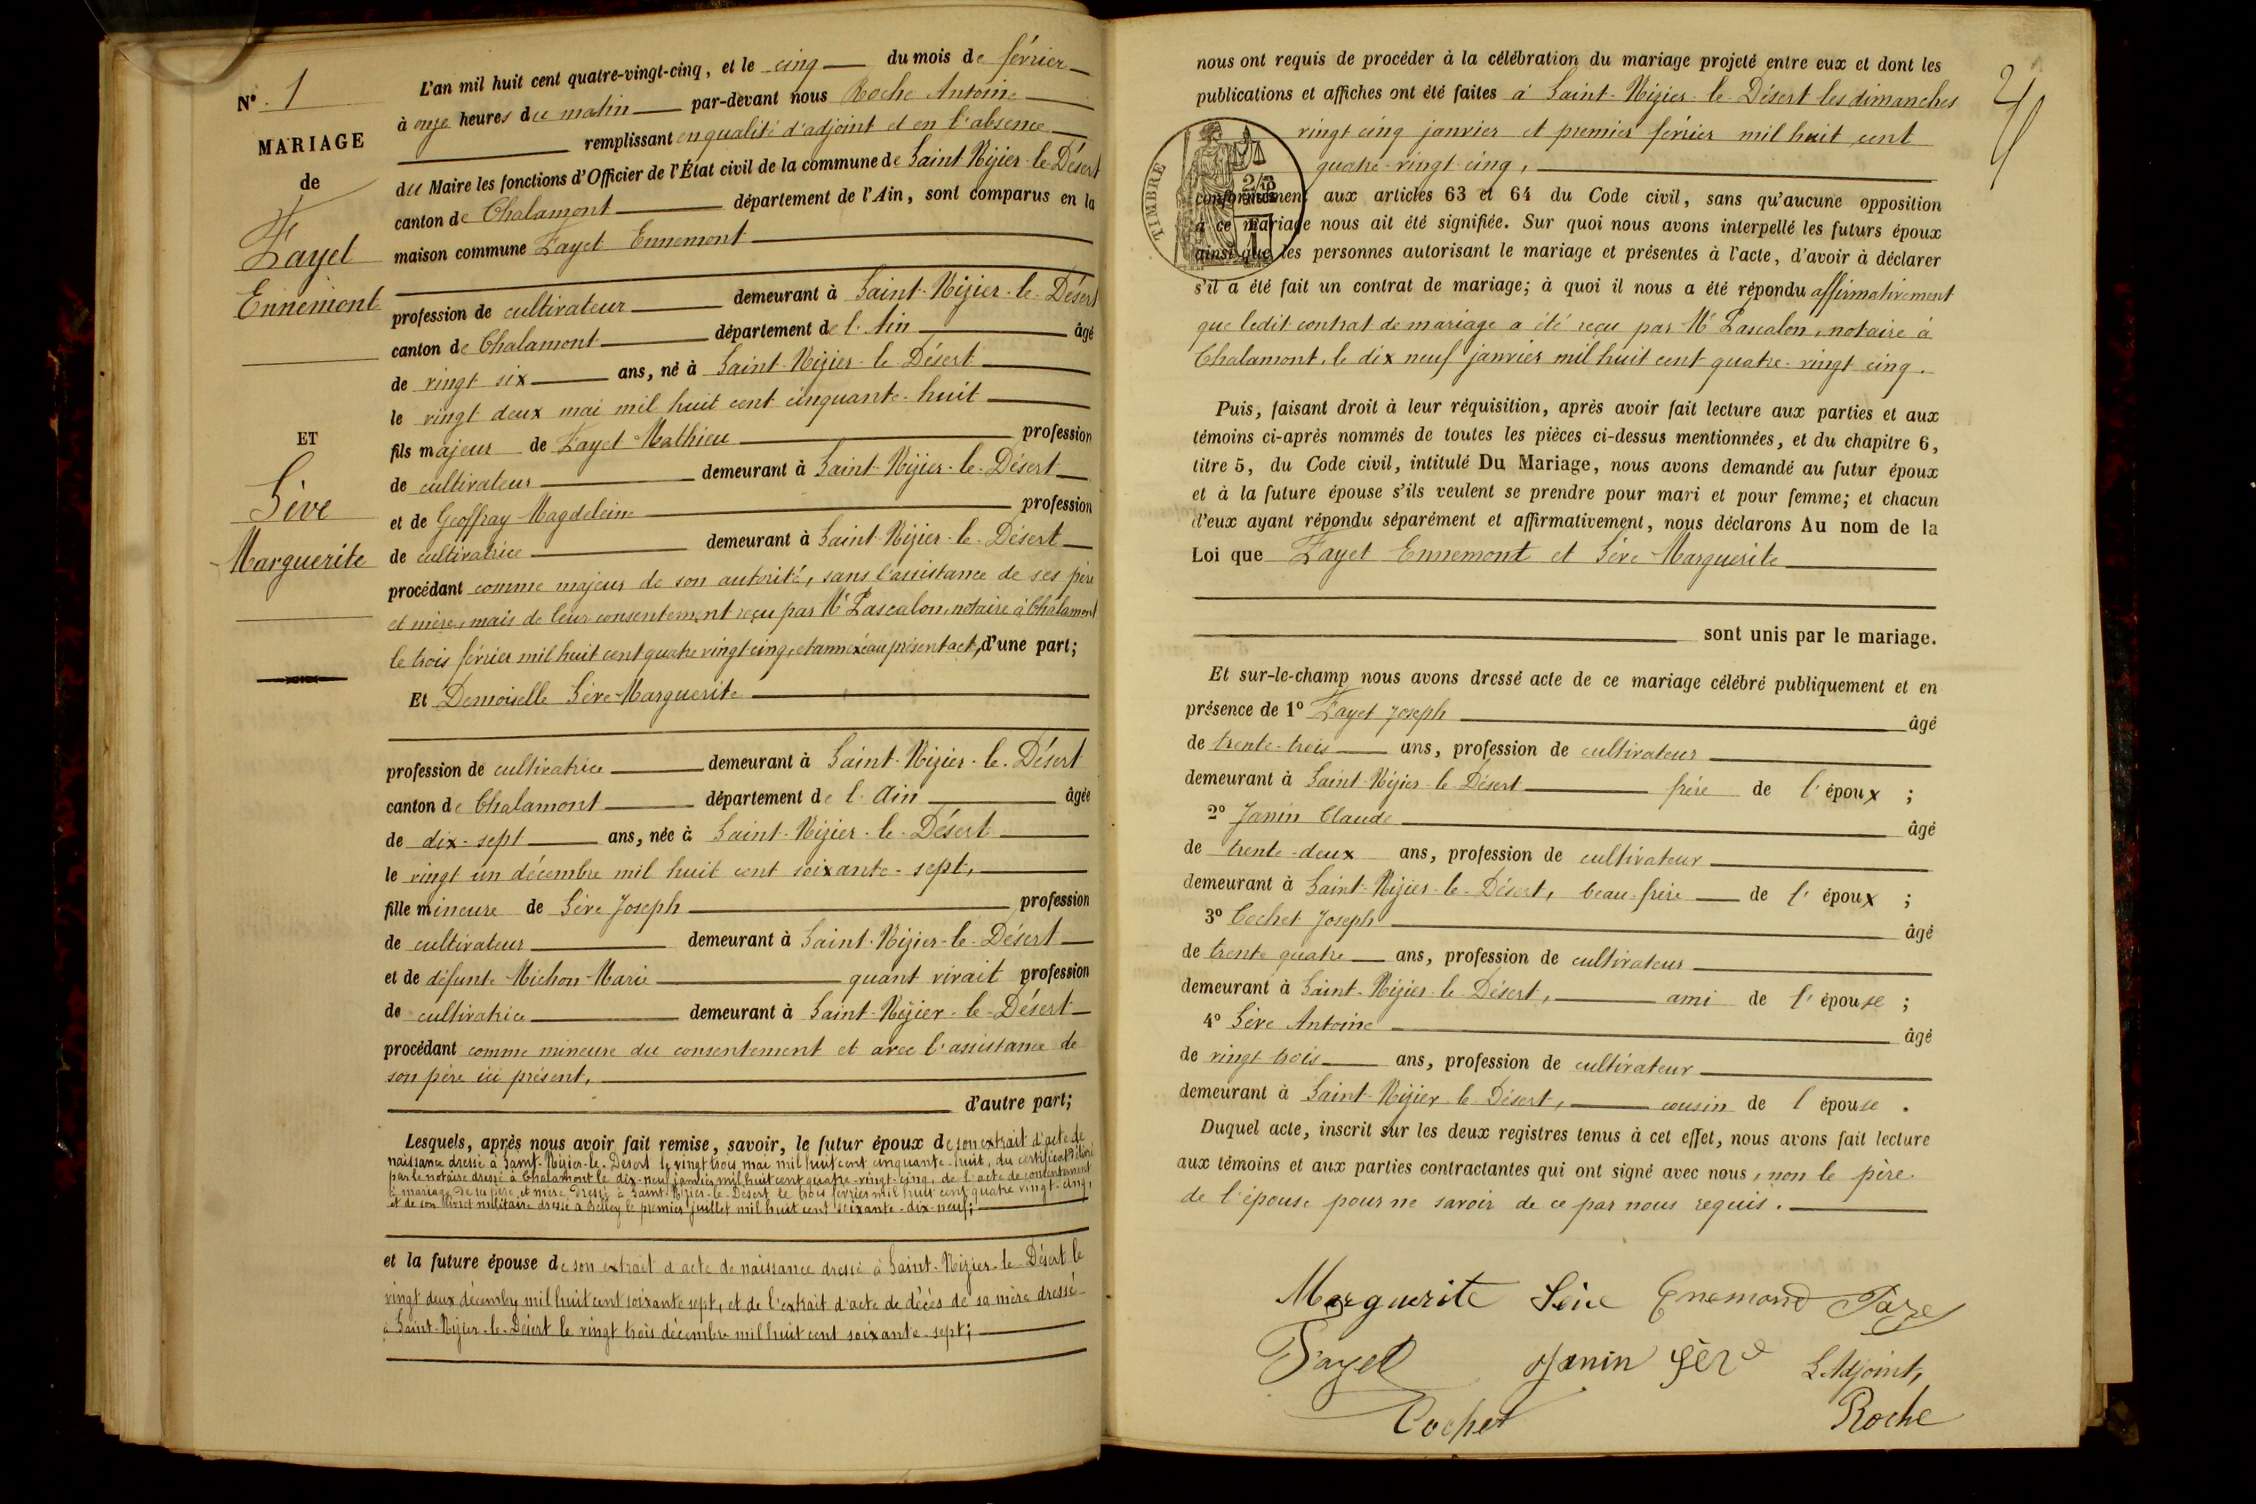 N° 1
MARIAGE
de
Fayet
Ennemont
ET
Sève
Marguerite
L'an mil huit cent quatre-vingt-cinq, et le cinq du mois de février
à onze heures du matin par-devant nous Roche Antoine
remplissant en qualité d'adjoint et en l'absence
du Maire les fonctions d'Officier de l'État civil de la commune de Saint Nizier-le-Désert
canton de Chalamont département de l'Ain, sont comparus en la
maison commune Fayet Ennemont
profession de cultivateur demeurant à Saint-Nizier-le-Désert
canton de Chalamont département de l'Ain âgé
de vingt six ans, né à Saint-Nizier-le-Désert
le vingt deux mai mil huit cent cinquante-huit
fils majeur de Fayet Mathieu profession
de cultivateur demeurant à Saint-Nizier-le-Désert
et de Geoffray Magdeleine profession
de cultivatrice demeurant à Saint-Nizier-le-Désert
procédant comme majeur de son autorité, sans l'assistance de ses père
et mère, mais de leur consentement reçu par Me Pascalon, notaire à Chalamont
le trois février mil huit cent quatre vingt cinq, et annexé au présent acte, d'une part;
Et Demoiselle Sève Marguerite
profession de cultivatrice demeurant à Saint-Nizier-le-Désert
canton de Chalamont département de l'Ain âgée
de dix-sept ans, née à Saint-Nizier-le-Désert
le vingt un décembre mil huit cent soixante-sept,
fille mineure de Sève Joseph profession
de cultivateur demeurant à Saint-Nizier-le-Désert
et de défunte Michon Marie quant vivait profession
de cultivatrice demeurant à Saint-Nizier-le-Désert
procédant comme mineure du consentement et avec l'assistance de
son père ici présent,
d'autre part;
Lesquels, après nous avoir fait remise, savoir, le futur époux de son extrait d'acte de
naissance dressé à Saint-Nizier-le-Désert le vingt trois mai mil huit cent cinquante-huit, du certificat délivré
par le notaire dressé à Chalamont le dix-neuf janvier mil huit cent quatre-vingt-cinq, de l'acte de consentement
à mariage de ses père et mère dressé à Saint-Nizier-le-Désert le trois février mil huit cent quatre vingt-cinq,
et de son livret militaire dressé à Belley le premier juillet mil huit cent soixante-dix-neuf;
et la future épouse de son extrait d'acte de naissance dressé à Saint-Nizier-le-Désert le
vingt deux décembre mil huit cent soixante sept, et de l'extrait d'acte de décès de sa mère dressé
à Saint-Nizier-le-Désert le vingt trois décembre mil huit cent soixante-sept;
nous ont requis de procéder à la célébration du mariage projeté entre eux et dont les
publications et affiches ont été faites à Saint-Nizier-le-Désert les dimanches
vingt cinq janvier et premier février mil huit cent
quatre-vingt cinq,
TIMBRE
conformément aux articles 63 et 64 du Code civil, sans qu'aucune opposition
à ce mariage nous ait été signifiée. Sur quoi nous avons interpellé les futurs époux
ainsi que les personnes autorisant le mariage et présentes à l'acte, d'avoir à déclarer
s'il a été fait un contrat de mariage; à quoi il nous a été répondu affirmativement
que ledit contrat de mariage a été reçu par Me Pascalon, notaire à
Chalamont, le dix neuf janvier mil huit cent quatre-vingt cinq.
Puis, faisant droit à leur réquisition, après avoir fait lecture aux parties et aux
témoins ci-après nommés de toutes les pièces ci-dessus mentionnées, et du chapitre 6,
titre 5, du Code civil, intitulé Du Mariage, nous avons demandé au futur époux
et à la future épouse s'ils veulent se prendre pour mari et pour femme; et chacun
d'eux ayant répondu séparément et affirmativement, nous déclarons Au nom de la
Loi que Fayet Ennemont et Sève Marguerite
sont unis par le mariage.
Et sur-le-champ nous avons dressé acte de ce mariage célébré publiquement et en
présence de 1° Fayet Joseph âgé
de trente-trois ans, profession de cultivateur
demeurant à Saint-Nizier-le-Désert frère de l'époux ;
2° Janin Claude âgé
de trente-deux ans, profession de cultivateur
demeurant à Saint-Nizier-le-Désert, beau-frère de l'époux ;
3° Cochet Joseph âgé
de trente quatre ans, profession de cultivateur
demeurant à Saint-Nizier-le Désert, ami de l'épouse ;
4° Sève Antoine âgé
de vingt trois ans, profession de cultivateur
demeurant à Saint-Nizier-le-Désert, cousin de l'épouse .
Duquel acte, inscrit sur les deux registres tenus à cet effet, nous avons fait lecture
aux témoins et aux parties contractantes qui ont signé avec nous, non le père
de l'épouse pour ne savoir de ce par nous requis.
Marguerite Sève Enemond Faye
Fayet Janin Sève L'Adjoint,
Cochet Roche